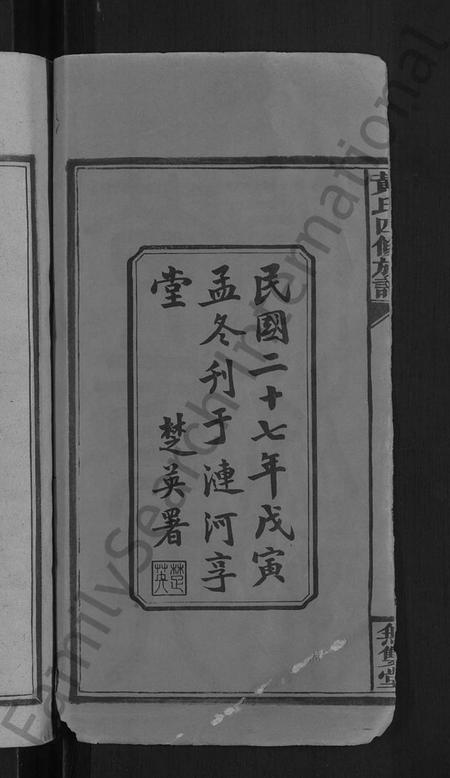 民國二十七年戊寅
孟冬刊于漣河享
堂 楚英署
楚英
黃氏四修族譜
無雙堂
FamilySearch International